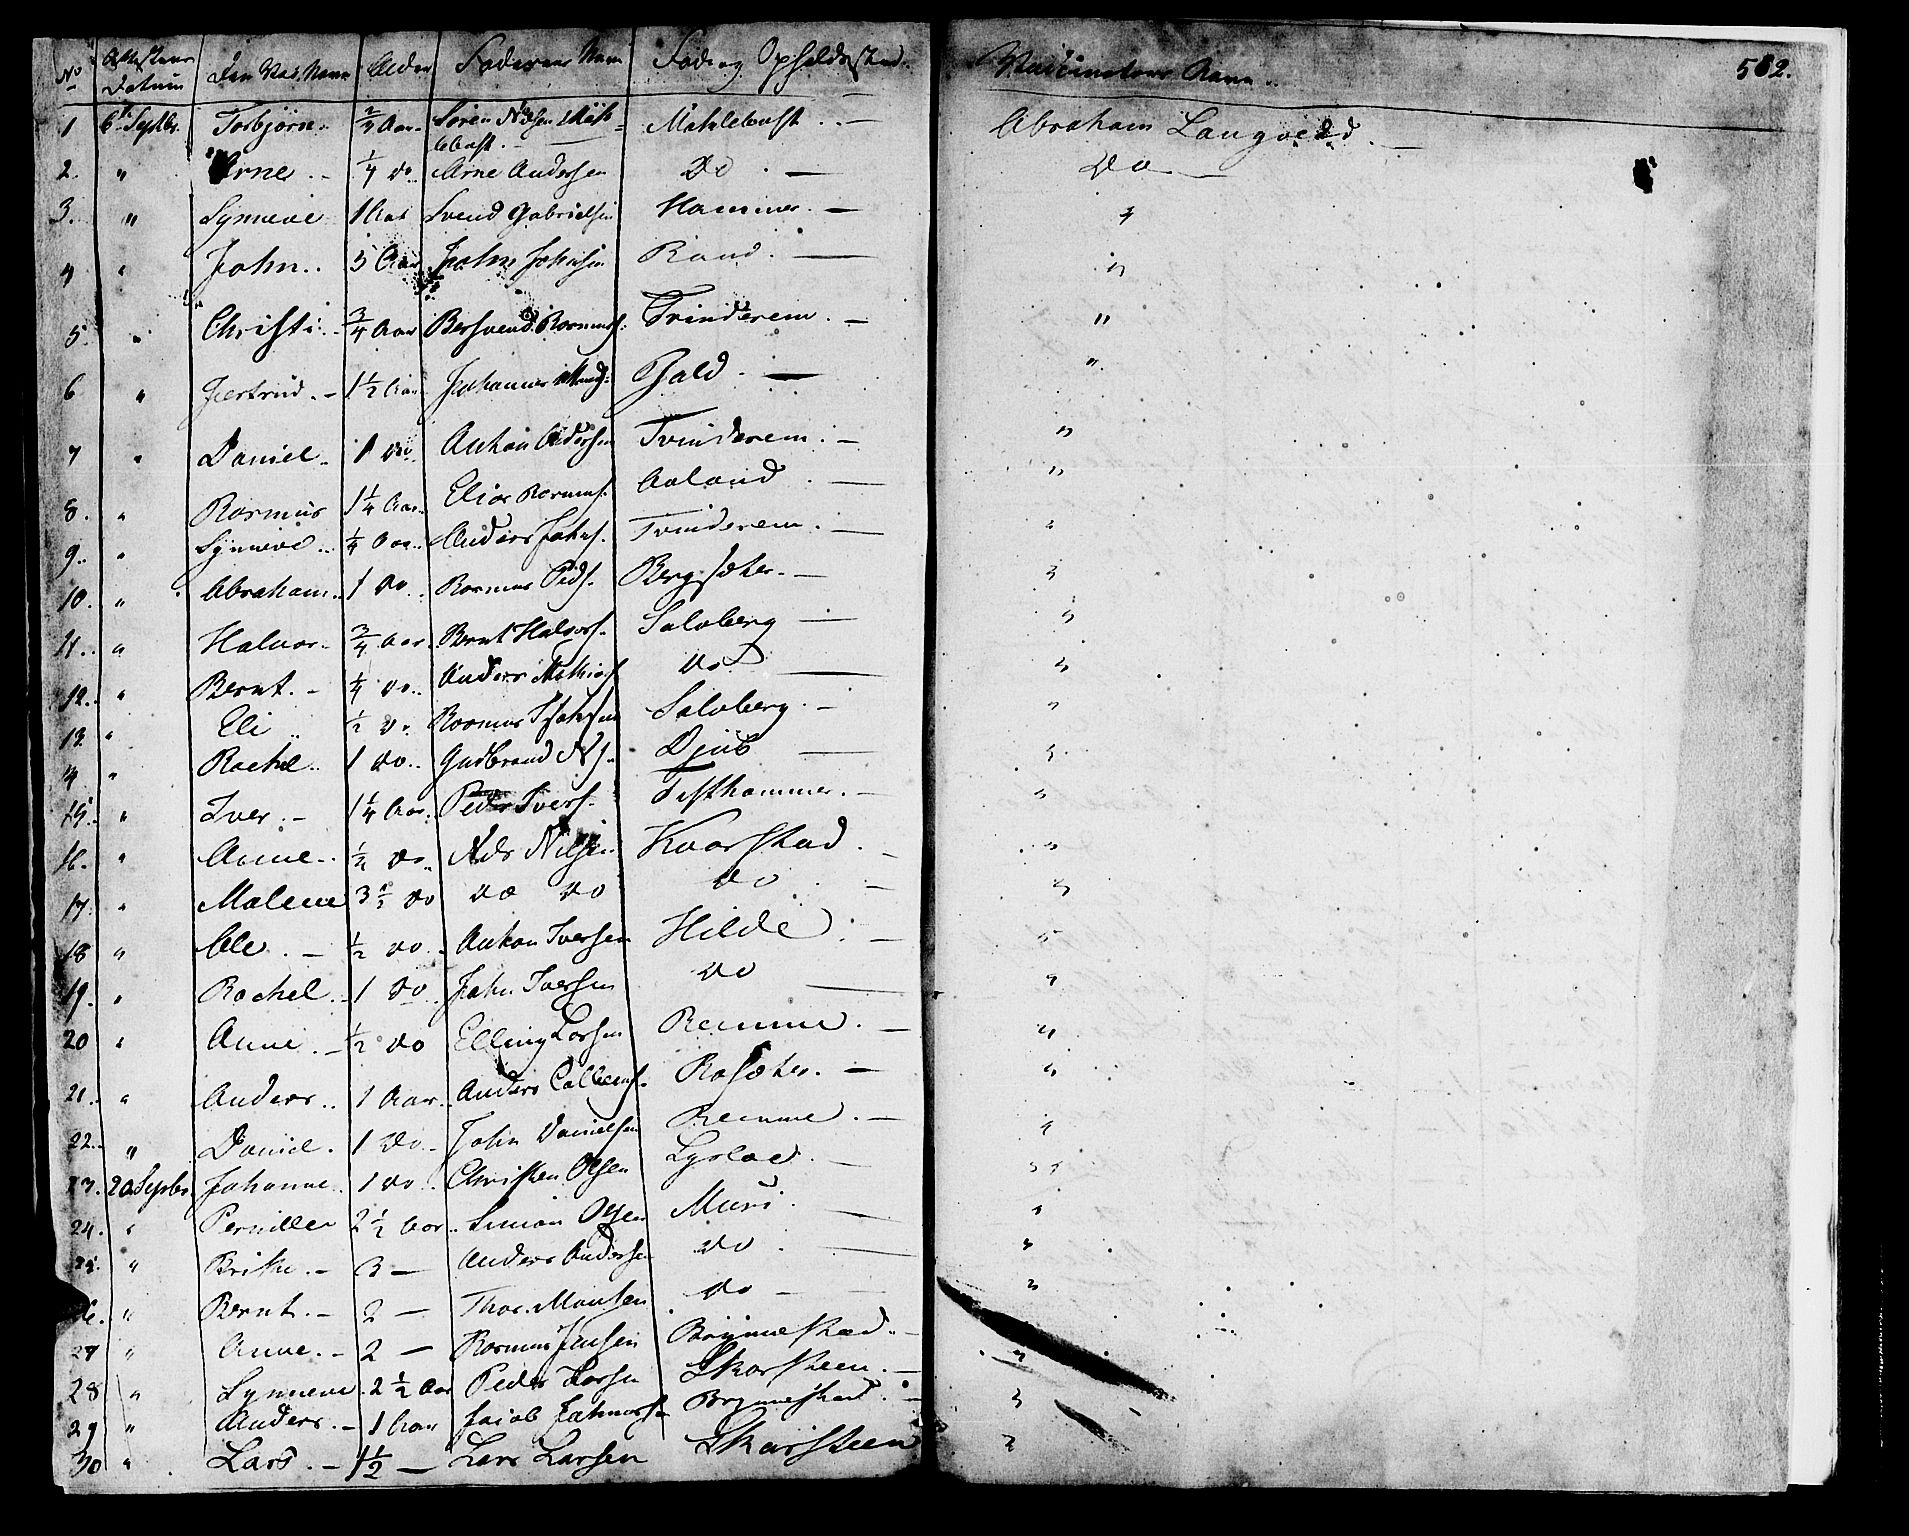 No Attestens Datum Den Vac. Navn Alder Faderens Navn Føde og Opholdssted. Vaccinateurs Navn. 502.
1 6te Septbr. Torbjørn. 2/3 Aar. Søren Nilsen Mahlebust. Mahlebust. Abraham Langvedd.
2. " Arne. 1/4 do. Arne Andersen Do. Do
3. " Synneve 1 Aar Svend Gabrielsen Hammer. "
4 " John. 5 Aar John Johnsen Rand. "
5 " Christi. 3/4 Aar Bersvend Rasmuss. Tvinderem. "
6 " Jertrud. 1 1/2 Aar Johannes Mads. Gjald. "
7 " Daniel. 1 do. Anton Andersen Tvinderem. "
8. " Rasmus 1 1/4 Aar. Elias Rasmuss. Aaland. "
9. " Synneve. 1/4 Aar. Anders Johns. Tvinderem. "
10. " Abraham. 1 do. Rasmus Peds. Bergsæter. "
11. " Halvor. 3/4 Aar. Bernt Halvors. Salsberg "
12. " Bernt. 1/4 do. Anders Mathias. Do "
13. " Eli 1/2 do. Rasmus Johsen Salsberg. "
14 " Rachel. 1 do. Gudbrand N. Djub "
15. " Iver. 1 1/4 Aar. Peder Ivers. Festhammer. "
16. " Anne. 1/2 do. Nils Nilsen Kvarstad. "
17 " Malene 3 1/2 do do do do "
18 " Ole. 1/2 do. Anton Iversen Hilde. "
19. " Rachel. 1 do. John Iversen do "
20 " Anne. 1/2 do Elling Larsen Remme. "
21. " Anders. 1 Aar. Anders Rasæter. "
22. " Daniel. 1 do. John Danielsen Remme. "
23. 20 Septbr. Johanne. 1 do. Christen Olsen "
24. " Pernille 2 1/2 Aar. Simon Olsen Muri. "
25. " Brithe. 3 — Anders Andersen do. "
26. " Bernt. 2 — Thor. Monsen do "
27 " Anne. 2 — Rasmus Jensen Brynnestad. "
28 " Synneve. 2 1/2 Aar Peder Larsen Skarsteen. "
29 " Anders. 1 Aar Jacob Brynnestad. "
30 " Lars. 1 1/2 — Lars Larsen Skarsteen "